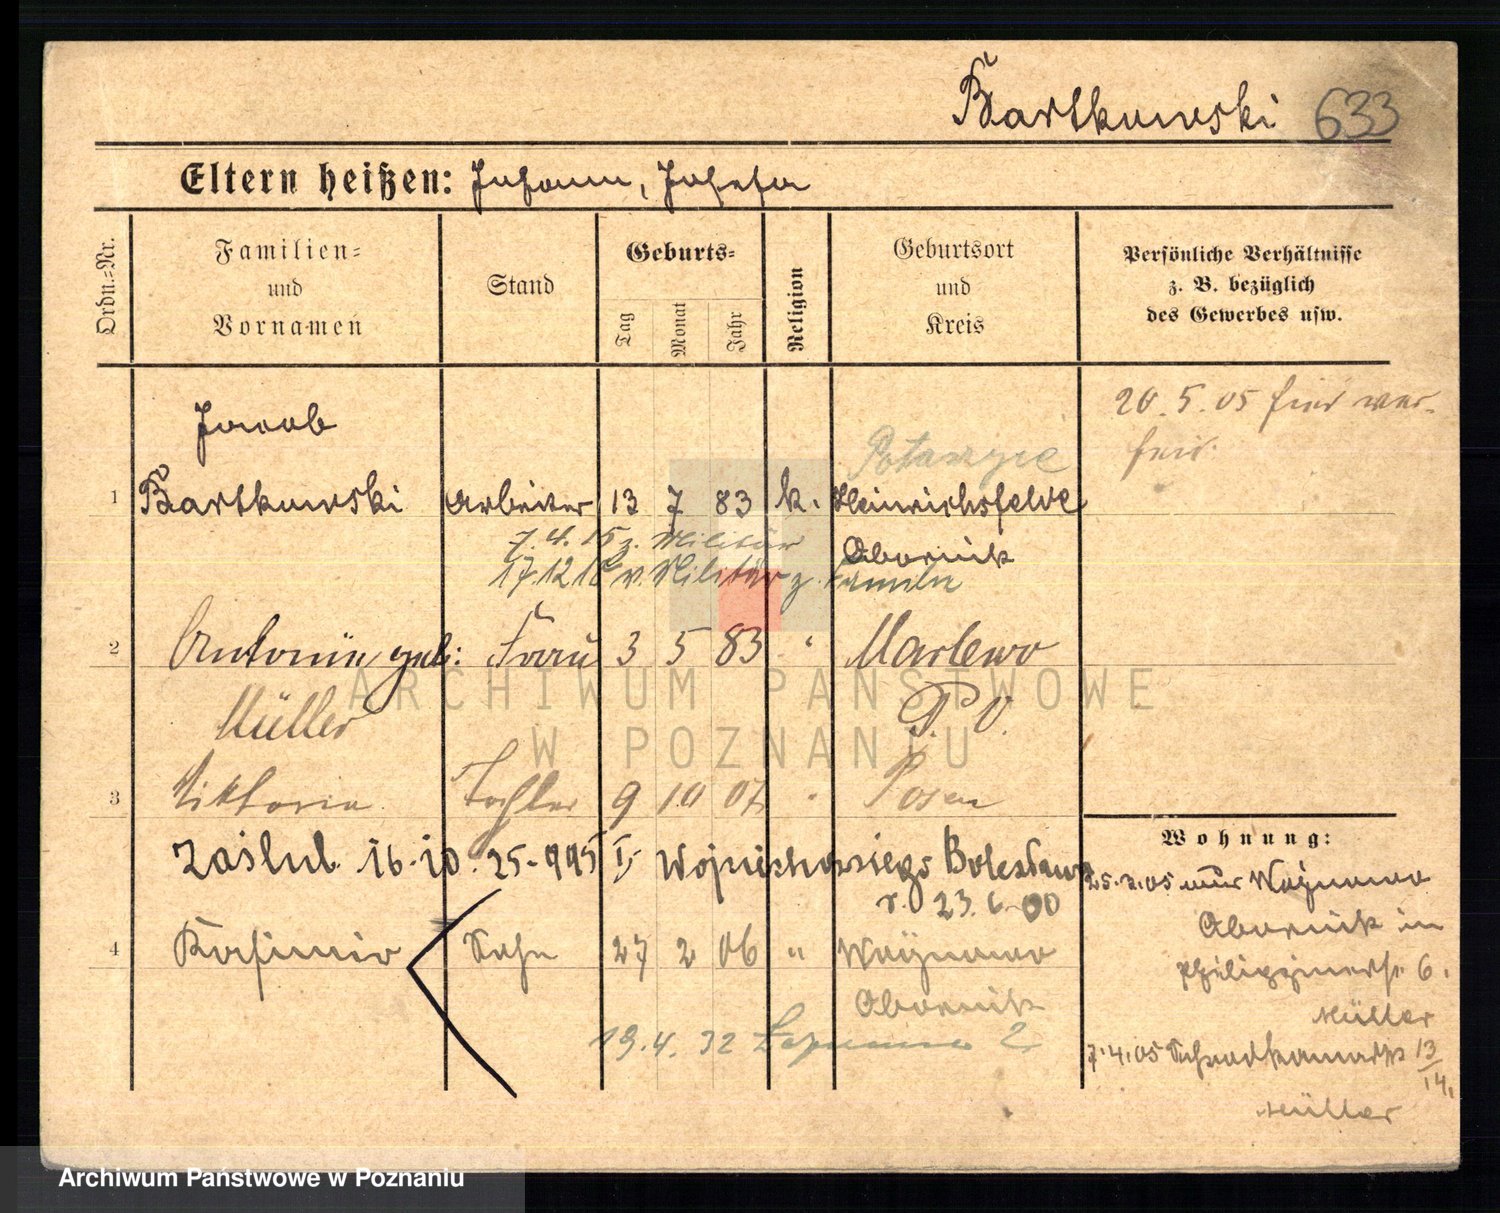 Bartkowski 633
Eltern heißen: Johann, Josefa
Ordn.-Nr.
Familien-
und
Vornamen
Stand
Geburts-
Tag
Monat
Jahr
Religion
Geburtsort
und
Kreis
Persönliche Verhältnisse
z. B. bezüglich
des Gewerbes usw.
Jacob
20.5.05 hier
Potarzyce
1 Bartkowski Arbeiter 13 7 83 k. Heinrichsfelde
7.4.15 z. Militär Obornik
17.12.18 v. Militär z. Familie
2 Antonie geb: Frau 3 5 83 " Marlewo
Müller P. O.
3 Viktoria Tochter 9 10 07 " Posen
zaślub. 16.10.25-995/I,
r. 23.6.00
4 Kasimir Sohn 27 2 06 " Woÿnowo
Obornik
19.4.32 2
Wohnung:
25.3.05 Woÿnowo
Obornik in
6.
Müller
7.4.05 13/14.
Müller
ARCHIWUM PAŃSTWOWE
W POZNANIU
Archiwum Państwowe w Poznaniu